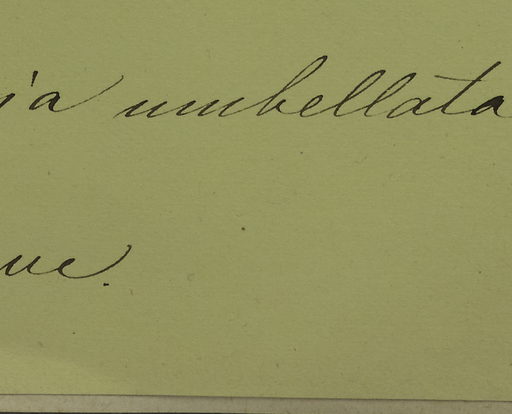 ia umbellata
ue.